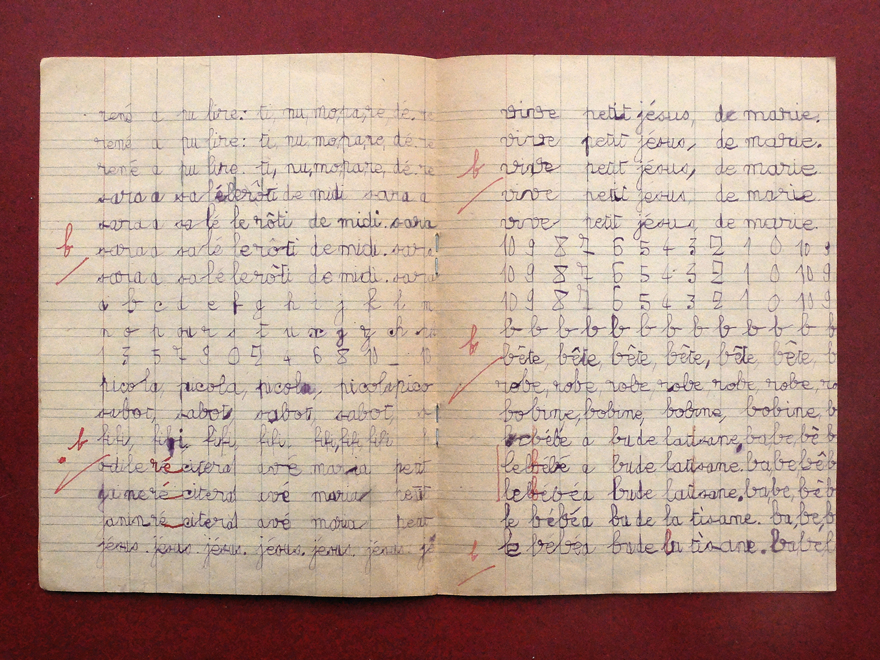 rené a pu lire: ti, nu, mo, pa, re, dé. re
rené a pu lire: ti, nu, mo, pa, re, dé. re
rené a pu lire. ti, nu, mo, pa, re, dé. re
sara a salé le rôti de midi sara a
sara a salé le rôti de midi. sara
b sara a salé le rôti de midi. sara
sara a salé le rôti de midi. sara
a b c d e f g h i j k l m
n o p q u r s t u x y z ch
1 3 5 7 9 0 2 4 6 8 10 _ 10
picola, picola, picola, picola pico
sabot, sabot, sabot, sabot, s
b fifi, fifi, fifi, fifi, fifi, fifi, fifi
odile récitera avé maria petit
janine récitera avé maria petit
janine récitera avé maria petit
jésus. jésus. jésus. jésus. jésus. jésus. jé
vive petit jésus, de marie.
vive petit jésus, de marie.
b vive petit jésus, de marie.
vive petit jésus, de marie.
vive petit jésus, de marie.
10 9 8 7 6 5 4 3 2 1 0 10
10 9 8 7 6 5 4 3 2 1 0 10 9
10 9 8 7 6 5 4 3 2 1 0 10 9
b b b b b b b b b b b b b
b bête, bête, bête, bête, bête, bête b
robe, robe, robe, robe robe, robe, ro
bobine, bobine, bobine, bobine, b
bébé a bu de la tisane, babe, bê b
le bébé a bu de la tisane. babe, bêb
le bébé a bu de la tisane. babe, bêb
le bébé a bu de la tisane. ba, be, b
b le bébé a bu de la tisane. babe b